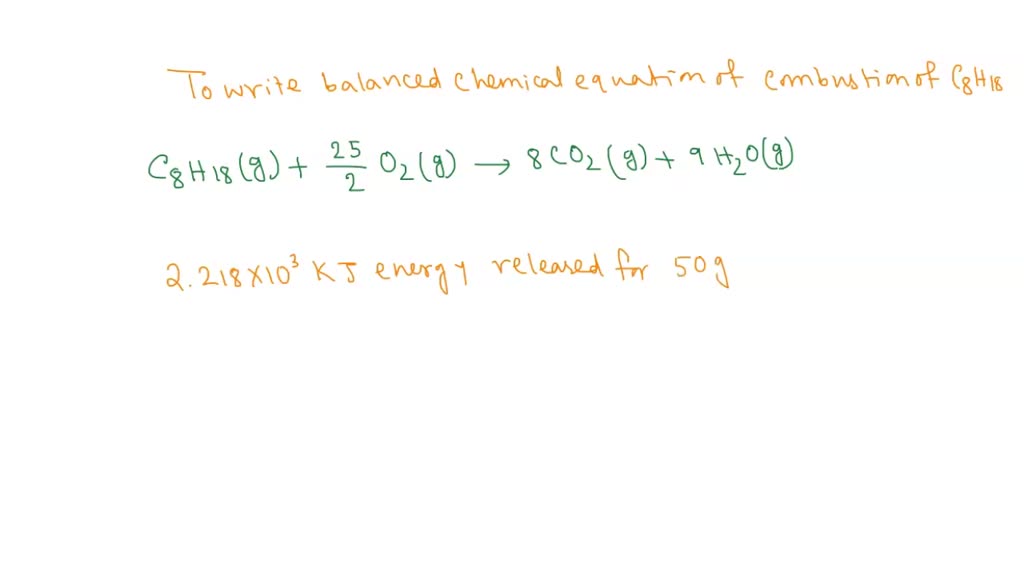 To write balanced chemical equation of combustion of C8H18
C8H18(g) + 25/2 O2(g) → 8CO2(g) + 9H2O(g)
2.218×10³ KJ energy released for 50g